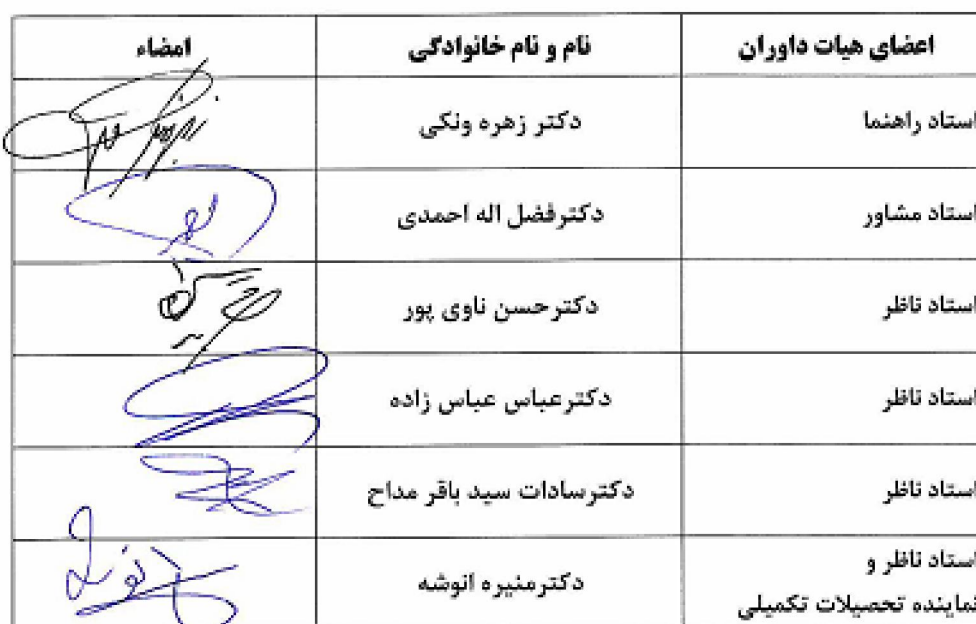 اعضای هیات داوران نام و نام خانوادگی امضاء
استاد راهنما دکتر زهره ونکی
استاد مشاور دکترفضل اله احمدی
استاد ناظر دکترحسن ناوی پور
استاد ناظر دکترعباس عباس زاده
استاد ناظر دکترسادات سید باقر مداح
استاد ناظر و
نماینده تحصیلات تکمیلی دکترمنیره انوشه